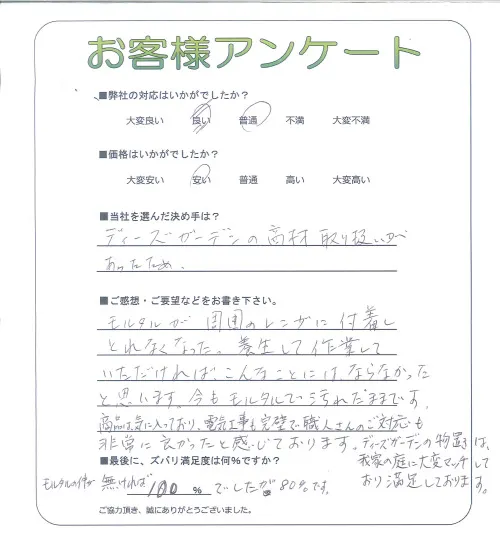 お客様アンケート
■弊社の対応はいかがでしたか?
大変良い 良い 普通 不満 大変不満
■価格はいかがでしたか?
大変安い 安い 普通 高い 大変高い
■当社を選んだ決め手は?
ディーズガーデンの商材取り扱いが
あったため、
■ご感想・ご要望などをお書き下さい。
モルタルが周囲のレンガに付着し
とれなくなった。養生して作業して
いただければ、こんなことには、ならなかった
と思います。今もモルタルで汚れたままです。
商品は気に入っており、電気工事も完璧で職人さんのご対応も
非常に良かったと感じております。ディーズガーデンの物置は、
我家の庭に大変マッチして
おり満足しております。
■最後に、ズバリ満足度は何%ですか?
モルタルの件が無ければ 100 % でしたが 80%です。
ご協力頂き、誠にありがとうございました。